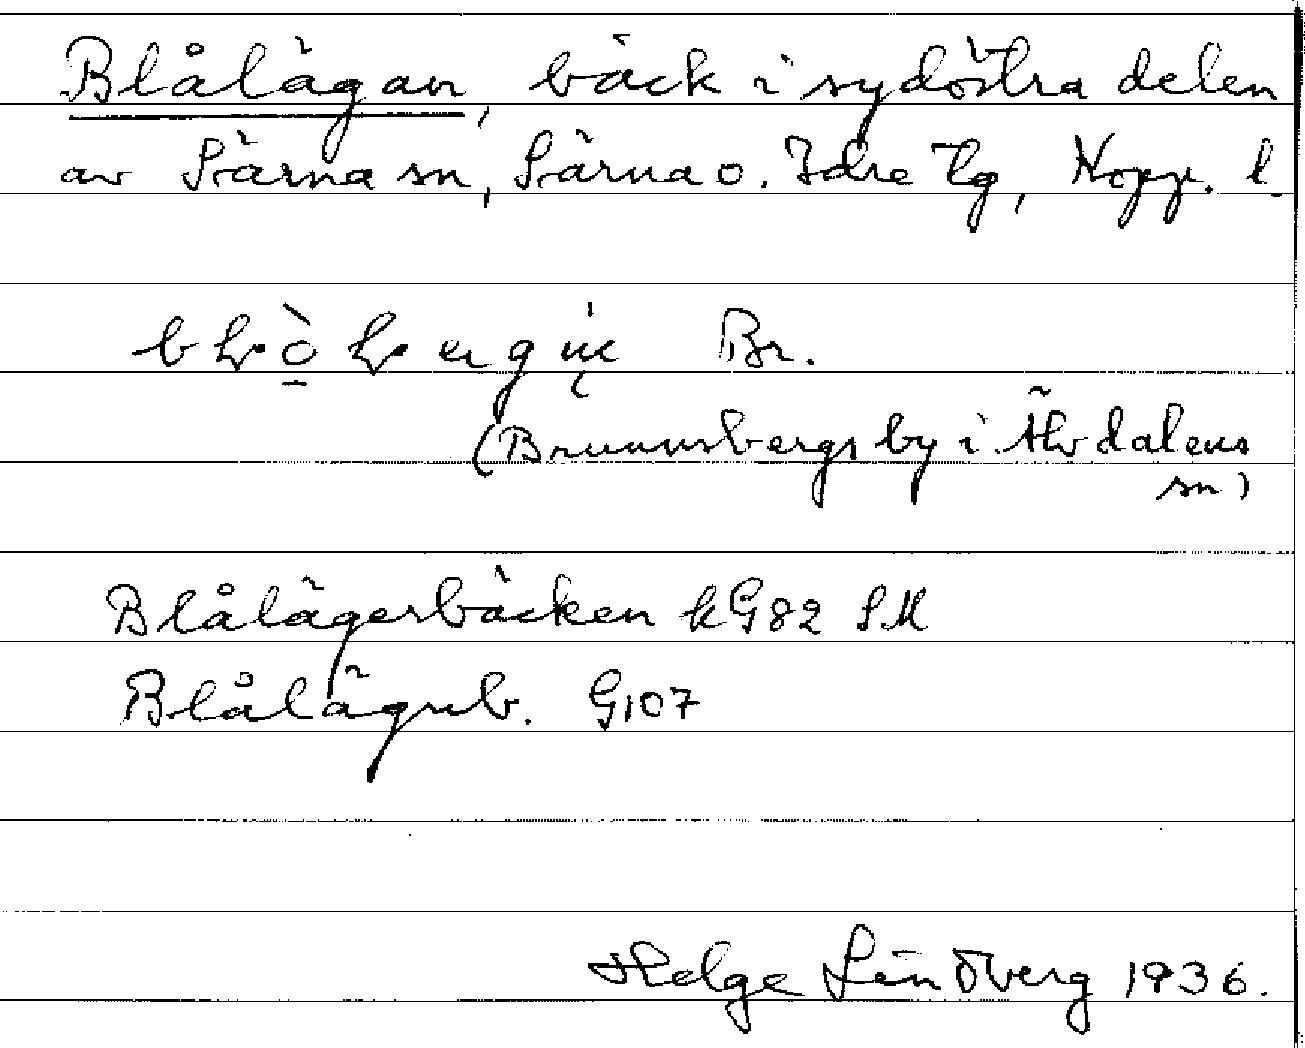 Blålägan, bäck i sydöstra delen
av Särna sn, Särna o. Idre tg, Kopp. l.
Br.
(Brunnsbergs by i Älvdalens
sn)
Blålägerbäcken kG82 SM
Blålägub. G107
Helge Lindberg 1936.